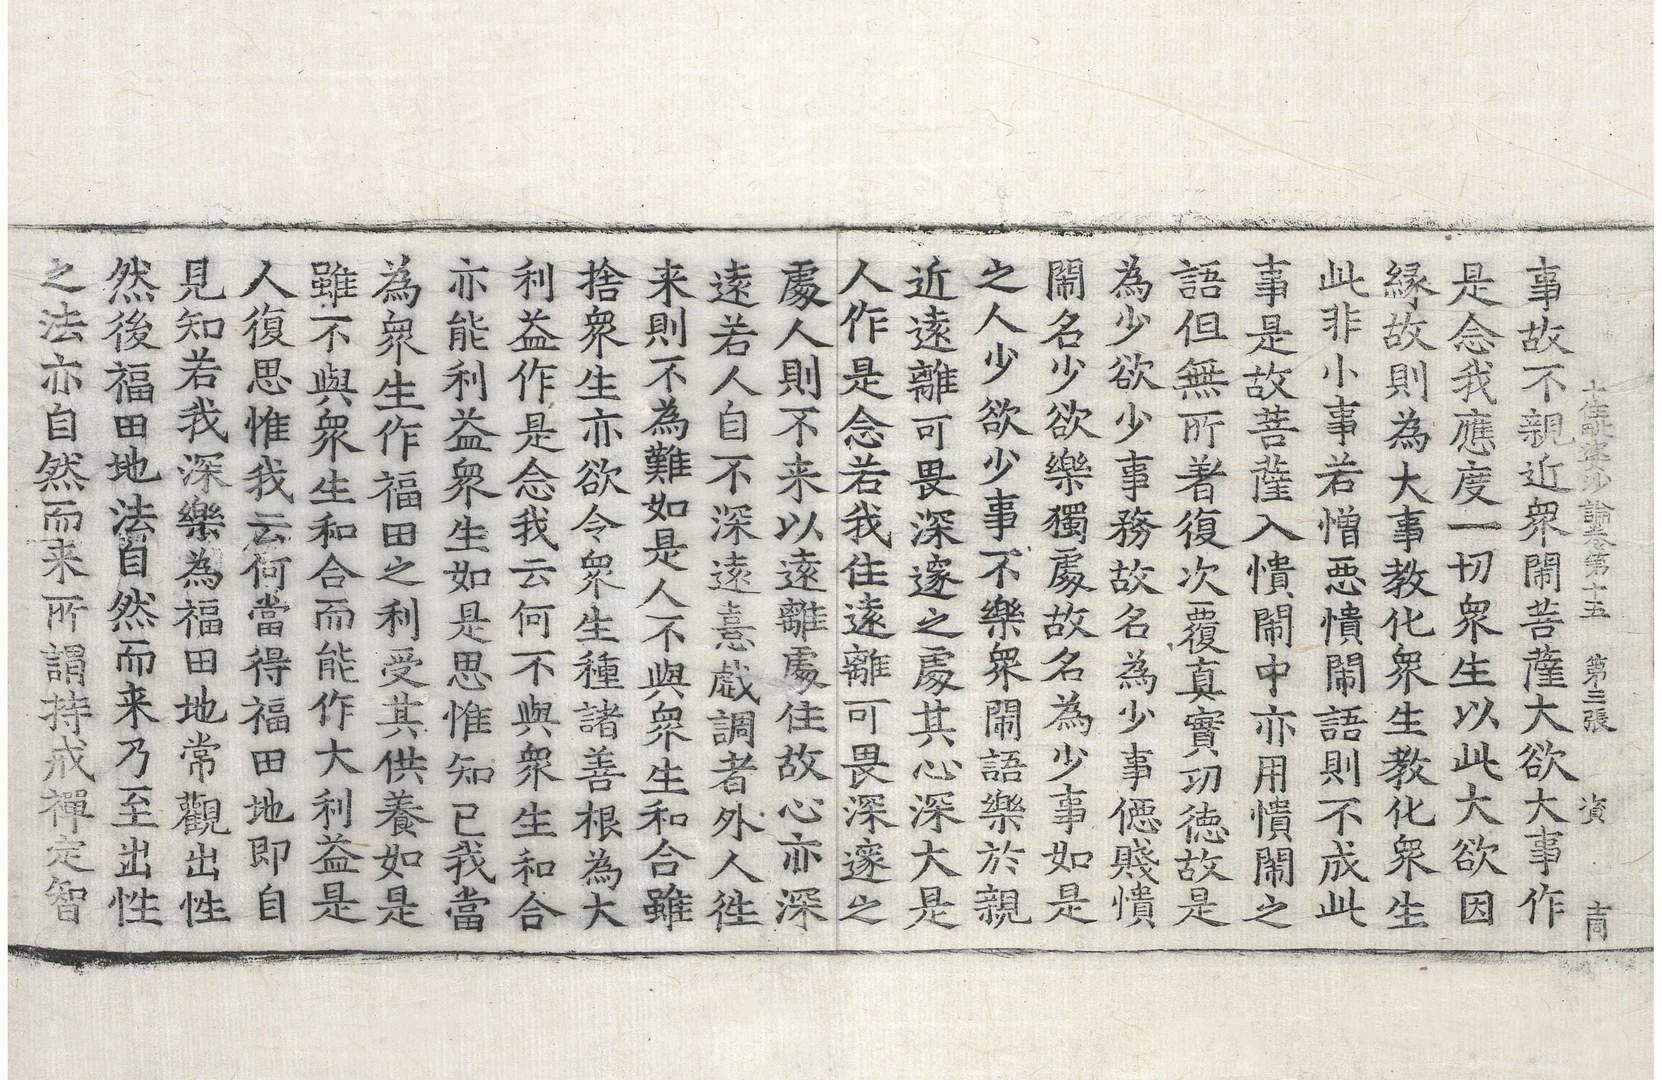 十住毗婆沙論卷第十五　第三張　資
事故不親近衆閙菩薩大欲大事作
是念我應度一切衆生以此大欲因
緣故則為大事教化衆生教化衆生
此非小事若憎惡憒閙語則不成此
事是故菩薩入憒閙中亦用憒閙之
語但無所著復次覆真實功德故是
為少欲少事務故名為少事僫賤憒
閙名少欲樂獨處故名為少事如是
之人少欲少事不樂衆閙語樂於親
近遠離可畏深邃之處其心深大是
人作是念若我住遠離可畏深邃之
處人則不来以遠離處住故心亦深
遠若人自不深遠憙戱調者外人徃
来則不為難如是人不與衆生和合雖
捨衆生亦欲令衆生種諸善根為大
利益作是念我云何不與衆生和合
亦能利益衆生如是思惟知已我當
為衆生作福田之利受其供養如是
雖不與衆生和合而能作大利益是
人復思惟我云何當得福田地即自
見知若我深樂為福田地常觀出性
然後福田地法自然而来乃至出性
之法亦自然而来所謂持戒禪定智